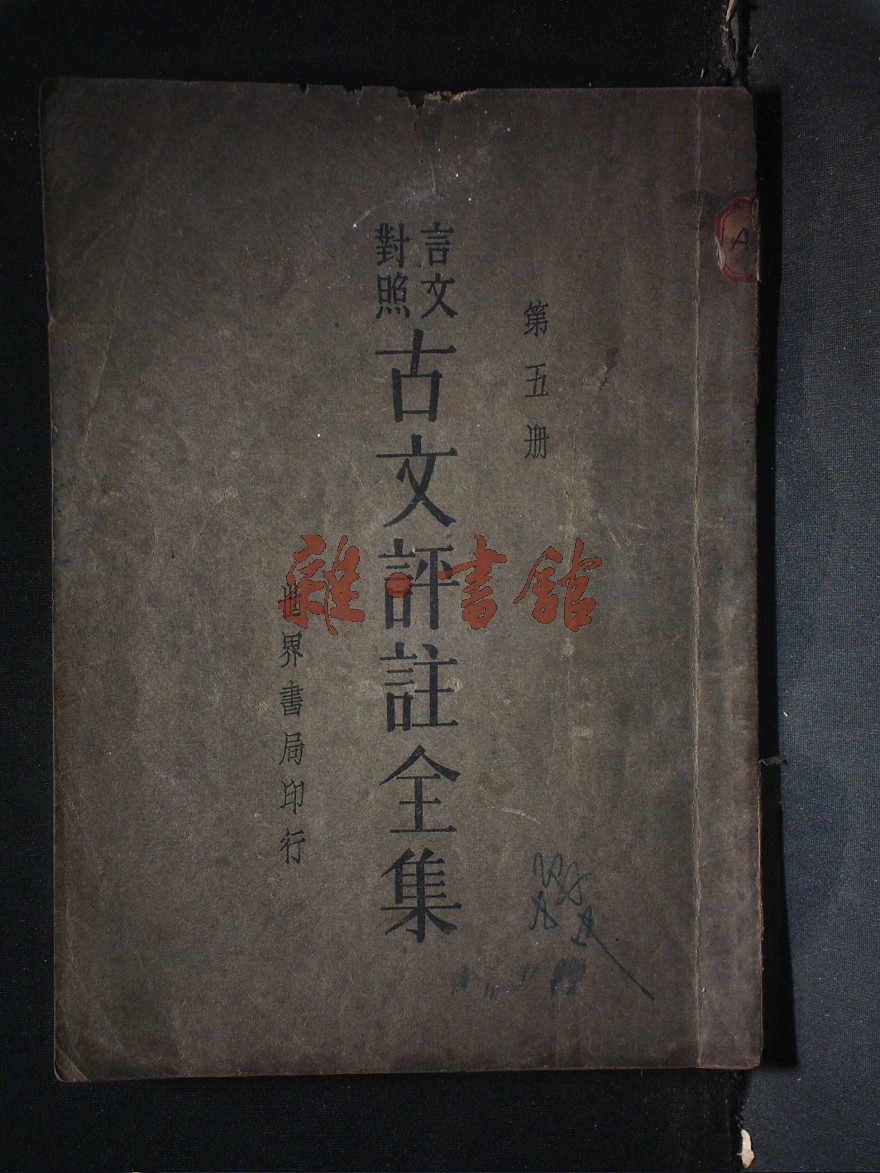 第五册
言文
對照
古文評註全集
世界書局印行
雜·書館
A